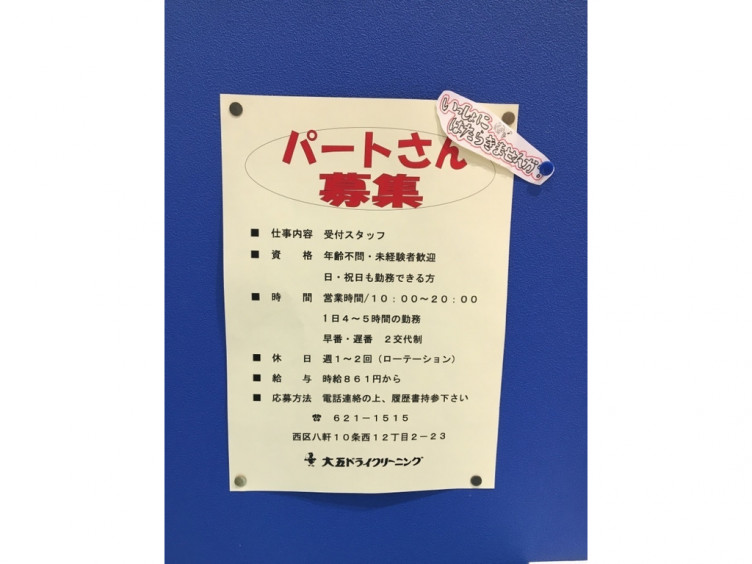 パートさん
募集
いっしょに
はたらきませんか?
■ 仕事内容 受付スタッフ
■ 資 格 年齢不問・未経験者歓迎
日・祝日も勤務できる方
■ 時 間 営業時間/10:00~20:00
1日4~5時間の勤務
早番・遅番 2交代制
■ 休 日 週1~2回(ローテーション)
■ 給 与 時給861円から
■ 応募方法 電話連絡の上、履歴書持参下さい
☎ 621-1515
西区八軒10条西12丁目2-23
大五ドライクリーニング